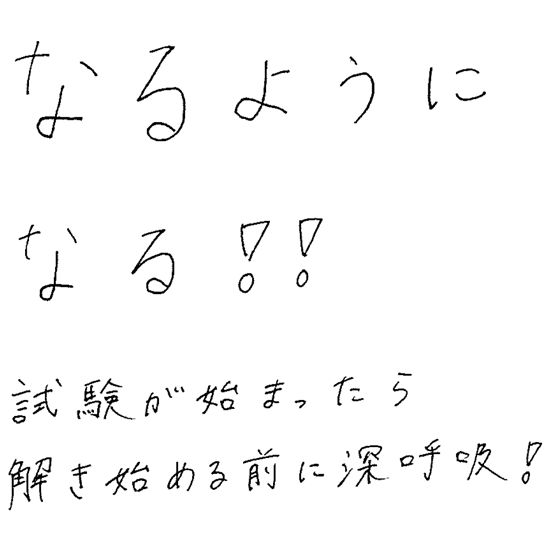 なるように
なる!!
試験が始まったら
解き始める前に深呼吸!